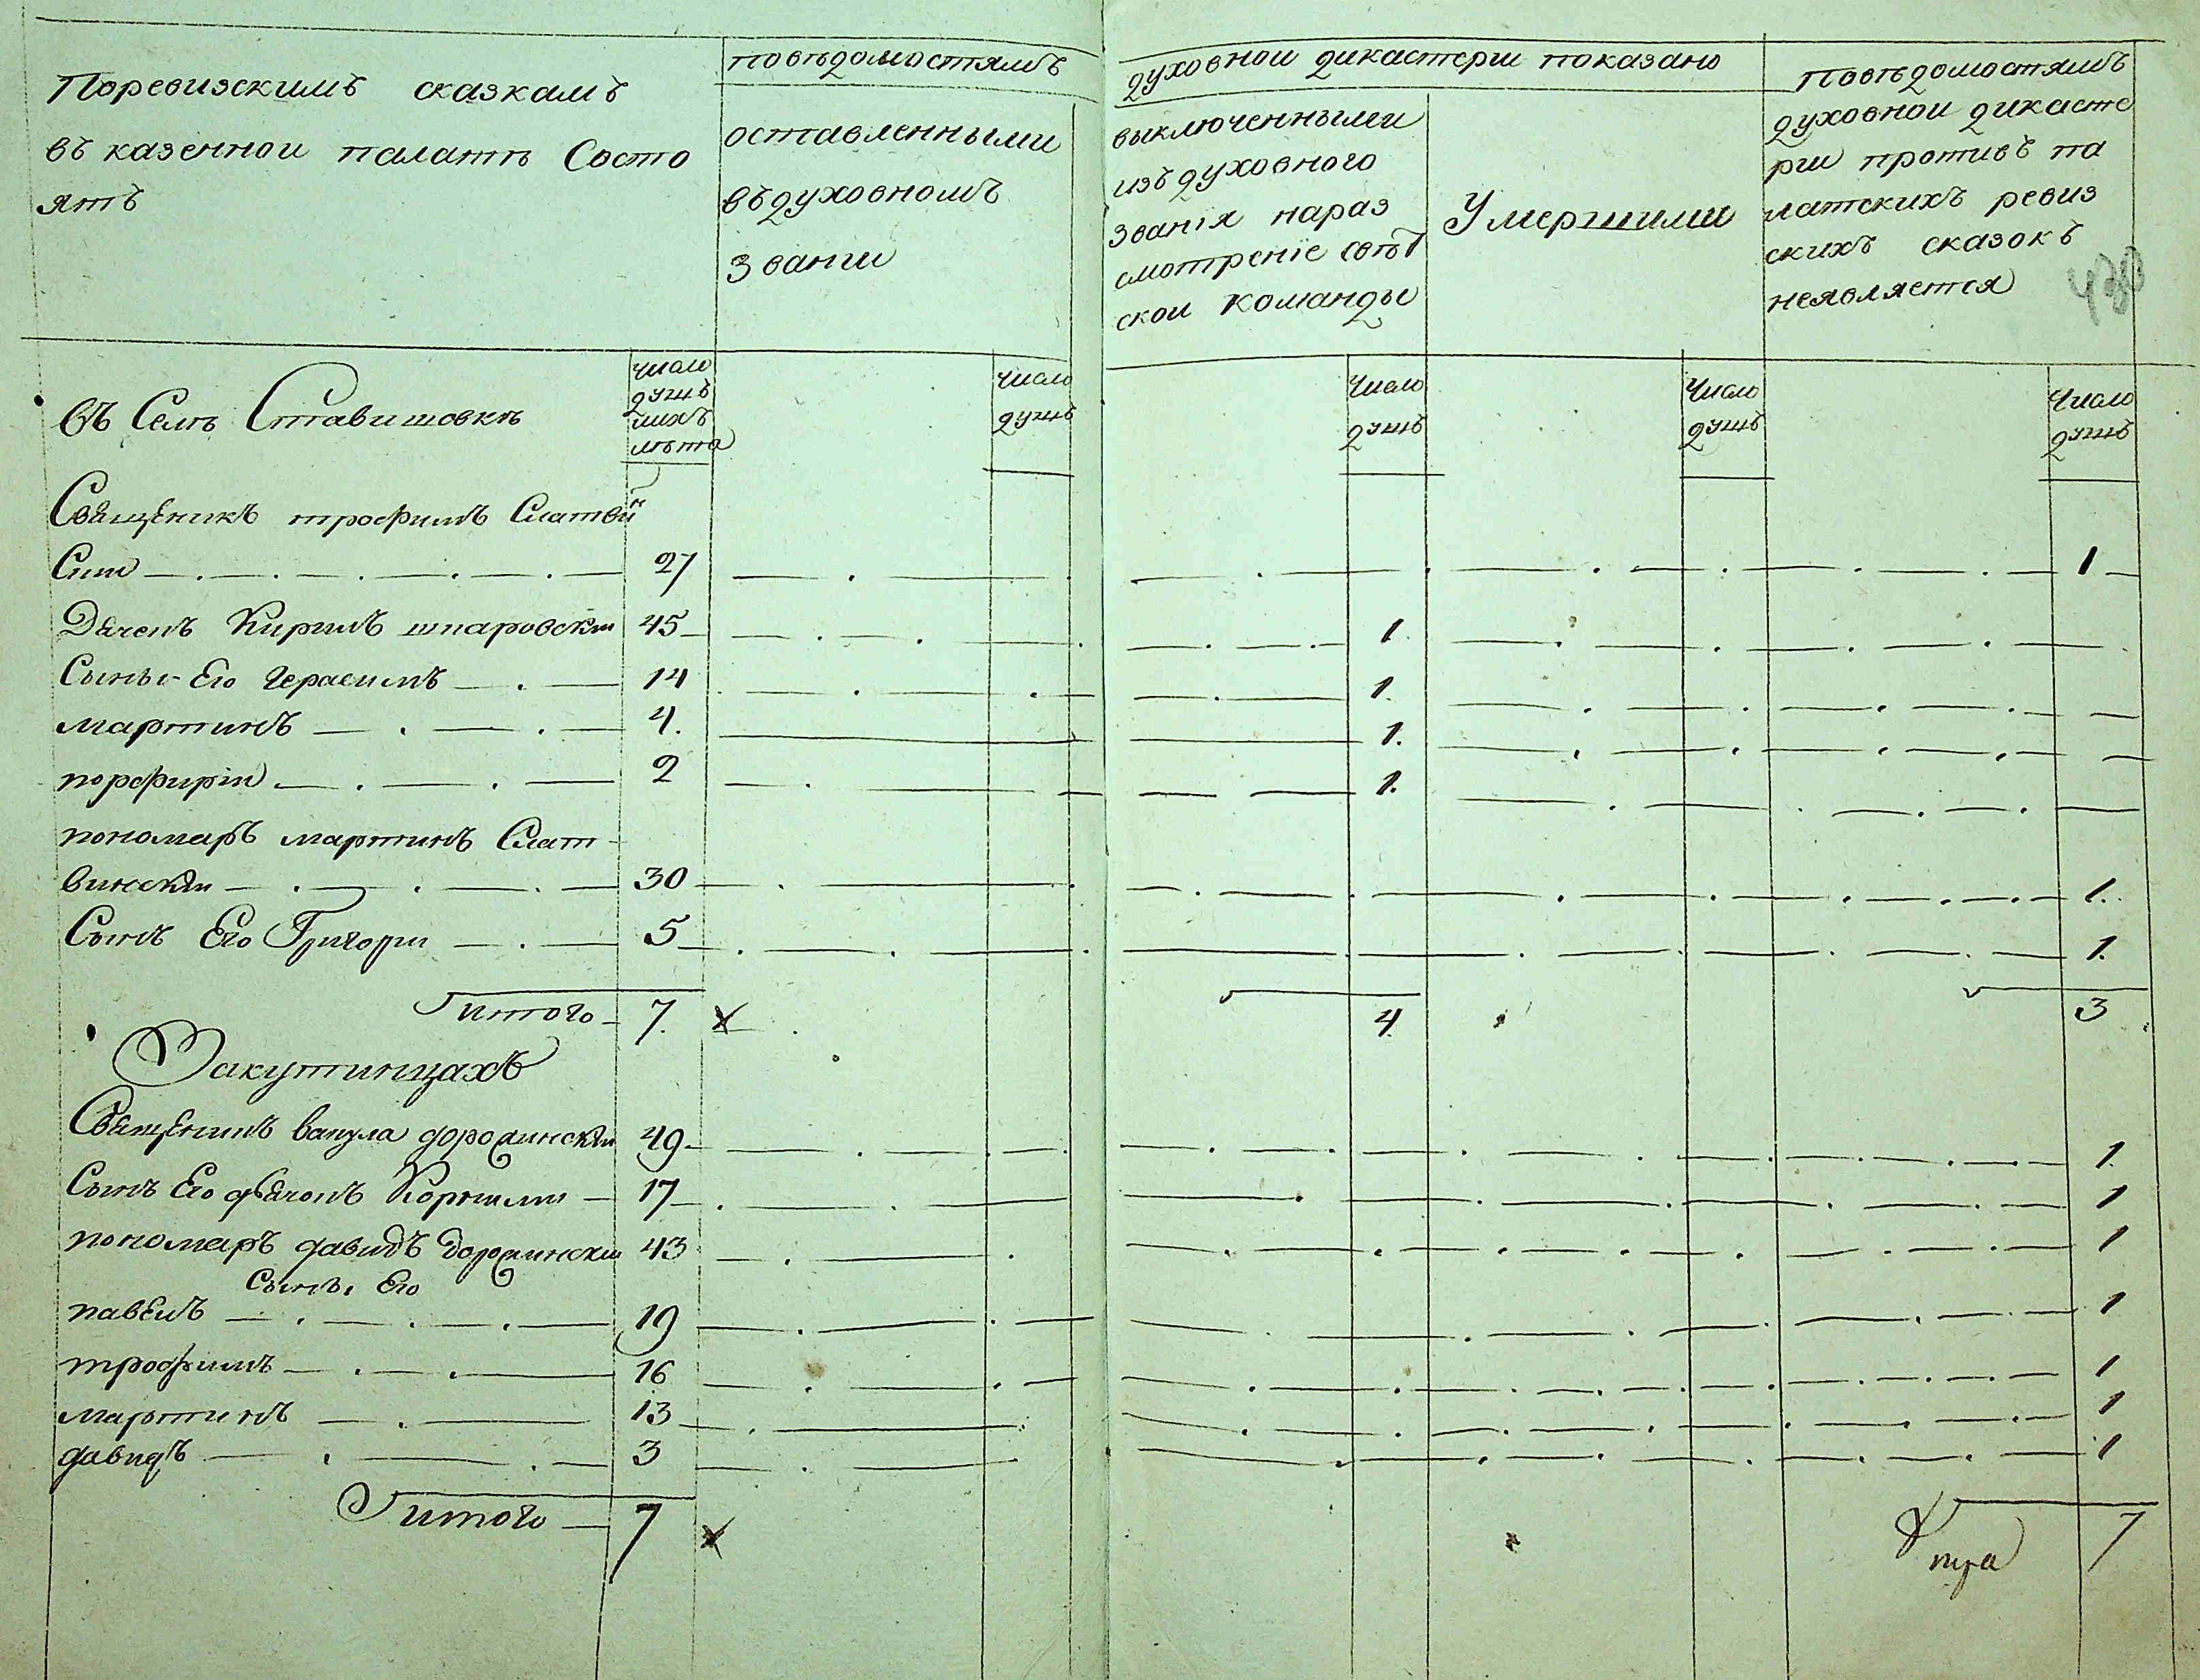 Поревизскимъ сказкамъ
въ казенной палатѣ Состо
ятъ
повѣдомостямъ
оставленными
въ духовномъ
звании
духовной дикастерии показано
выключенными
изъ духовного
званія нараз
смотреніе свѣт
ской команды
Умершими
Повѣдомостямъ
духовной дикасте
рии противъ па
латскихъ ревиз
скихъ сказокъ
неявляется
430
въ Селѣ Ставишовкѣ
число
душъ
ихъ
лѣта
число
душъ
Число
душъ
Число
душъ
Число
душъ
Священикъ трофимъ Слатвин
Скии 27 1
Дячекъ Кирилъ шпаровскии 45 1.
Сыны Его Герасимъ 14 1.
мартинъ 4. 1.
порфирии 2 1.
пономаръ мартинъ Слат
винскии 30 1.
Сынъ Его Григории 5 1.
итого 7. х 4. 3
Закутинцахъ
Священникъ вакула доросинскии 49 1.
Сынъ Его дячокъ Корнилии 17 1
пономаръ давидъ доросинскии 43 1
Сыны Его
павелъ 19 1
трофимъ 16 1
мартинъ 13 1
давидъ 3 1
итого 7 х 7